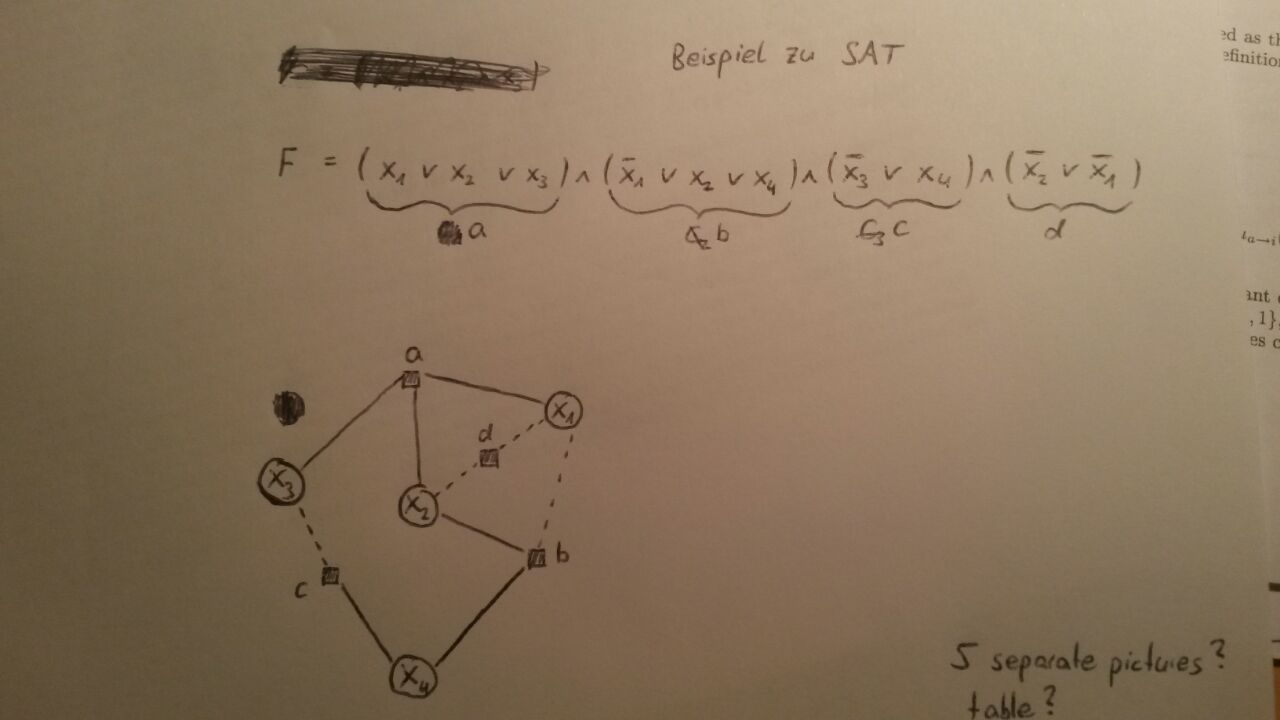 Beispiel zu SAT
F = (x₁ ∨ x₂ ∨ x₃) ∧ (x̄₁ ∨ x₂ ∨ x₄) ∧ (x̄₃ ∨ x₄) ∧ (x̄₂ ∨ x̄₁)
a b c d
a
x₁
d
x₃
x₂
b
c
x₄
5 separate pictures?
table?
ed as th
efinition
ιₐ→ᵢ(
ant
, 1},
es c